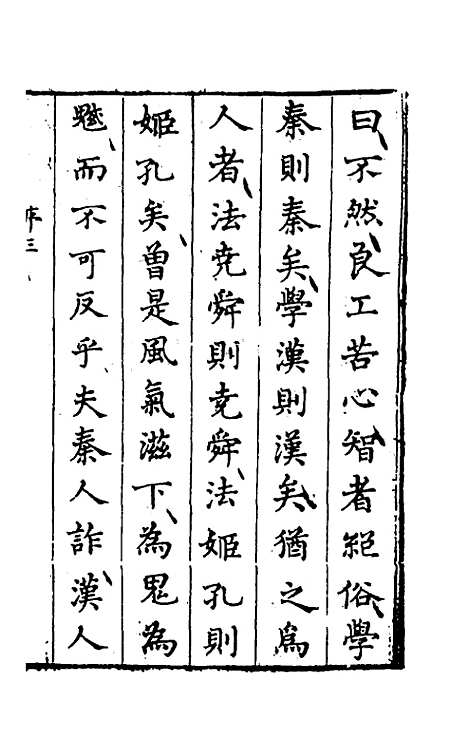 曰不然良工苦心智者絕俗學
秦則秦矣學漢則漢矣猶之爲
人者法堯舜則堯舜法姬孔則
姬孔矣曾是風氣滋下為鬼為
魅而不可反乎夫秦人詐漢人
序三